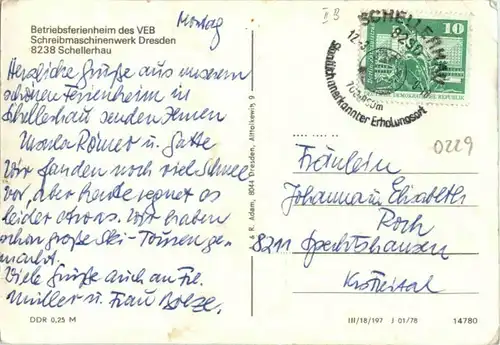 Betriebsferienheim des VEB
Schreibmaschinenwerk Dresden
8238 Schellerhau
Montag
II B
SCHELLERHAU
8238
12.3.
Staatlich anerkannter Erholungsort
10
DEUTSCHE DEMOKRATISCHE REPUBLIK
0229
Herzliche Grüße aus unserem
schönen Ferienheim in
Schellerhau senden Ihnen
Ursula Römer u. Gatte
Wir fanden noch viel Schnee
vor, aber heute regnet es
leider etwas. Wir haben
schon große Ski-Touren ge-
macht.
Viele Grüße auch an Frl.
Müller u. Frau
Fräulein
Johanna u. Elisabeth
8211
Kr. Freital
A. & R. Adam, 8044 Dresden, Altlolkewitz 9
DDR 0,25 M
III/18/197 J 01/78
14780